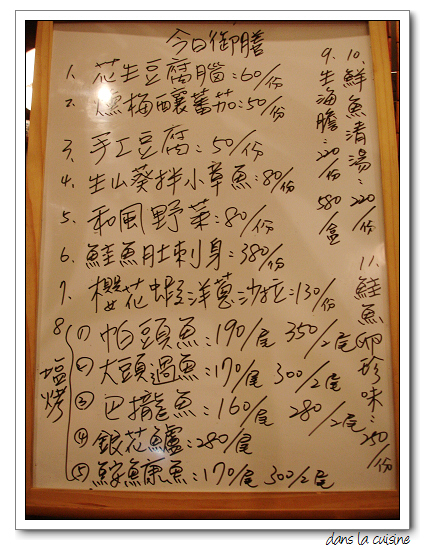 今日御膳
1. 花生豆腐腦:60/份
2. 梅釀蕃茄:50/份
3. 手工豆腐:50/份
4. 生山葵拌小章魚:80/份
5. 和風野菜:80/份
6. 鮭魚肚刺身:380/份
7. 櫻花蝦洋蔥沙拉:130/份
8 塩烤
(1) 帕頭魚:190/尾 350/2尾
(2) 大頭過魚:170/尾 300/2尾
(3) 巴攏魚:160/尾 280/2尾
(4) 銀花鱸:280/尾
(5) 魚:170/尾 300/2尾
9. 生海膽:220/份 580/盒
10. 鮮魚清湯:220/份
11. 鮭魚卵珍味:250/份
dans la cuisine